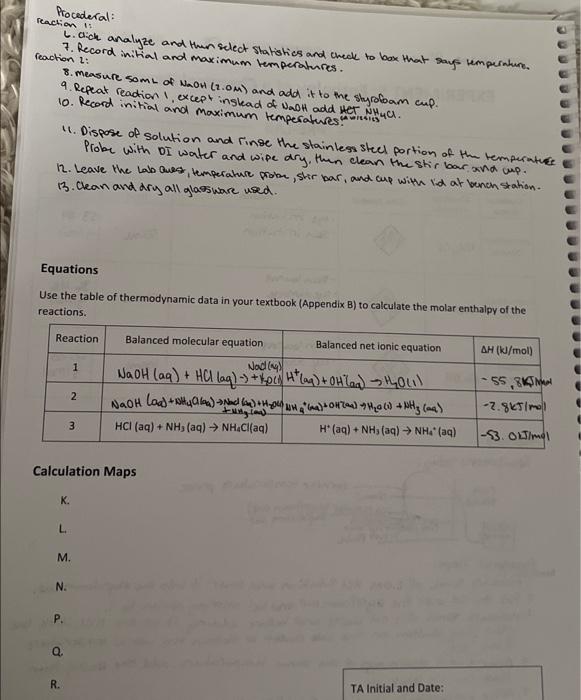 Procederal:
reaction 1:
6. click analyze and then select statistics and check to box that says temperature.
7. Record initial and maximum temperatures.
reaction 2:
8. measure some of NaOH (2.0M) and add it to the styrofoam cup.
9. Repeat reaction 1, except instead of NaOH add NH4Cl.
10. Record initial and maximum temperatures.
11. Dispose of solution and rinse the stainless steel portion of the temperature
Probe with DI water and wipe dry, then clean the stir bar and cup.
12. Leave the Lab Quest, temperature probe, stir bar, and cup with lid at bench station.
13. Clean and dry all glassware used.
Equations
Use the table of thermodynamic data in your textbook (Appendix B) to calculate the molar enthalpy of the
reactions.
Reaction Balanced molecular equation Balanced net ionic equation ΔH (kJ/mol)
1 NaOH (aq) + HCl (aq) → NaCl (aq) + H2O(l) H⁺(aq) + OH⁻(aq) → H2O(l) -55.8 kJ/mol
2 NaOH (aq) + NH4Cl(aq) → NaCl (aq) + H2O(l) + NH3(aq) NH4⁺(aq) + OH⁻(aq) → H2O(l) + NH3 (aq) -2.8kJ/mol
3 HCl (aq) + NH₃ (aq) → NH₄Cl(aq) H⁺ (aq) + NH₃ (aq) → NH₄⁺ (aq) -53.0kJ/mol
Calculation Maps
K.
L.
M.
N.
P.
Q.
R.
TA Initial and Date: